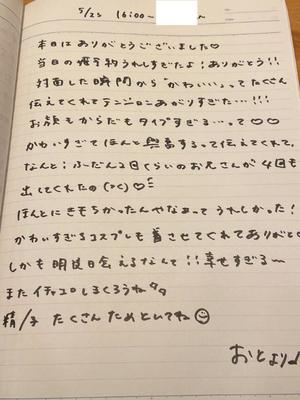 5/25 16:00〜
本日はありがとうございました♡
当日の優予約うれしすぎたよ!ありがとう!!
対面した瞬間から"かわいい"ってたくさん
伝えてくれてテンションあがりすぎた…!!!
お顔もからだもタイプすぎる…って♡♡
かわいすぎてほんと興奮するって伝えてくれて、
なんと!ふだん2回くらいのお兄さんが4回も
出してくれたの(><)♡
ほんとにきもちかったんやなぁってうれしかった!
かわいすぎるコスプレも着させてくれてありがと♡
しかも明後日会えるなんて!!幸せすぎる〜
またイチャコロしよくろうね
精/子 たくさんためといてね☺
おとより♪